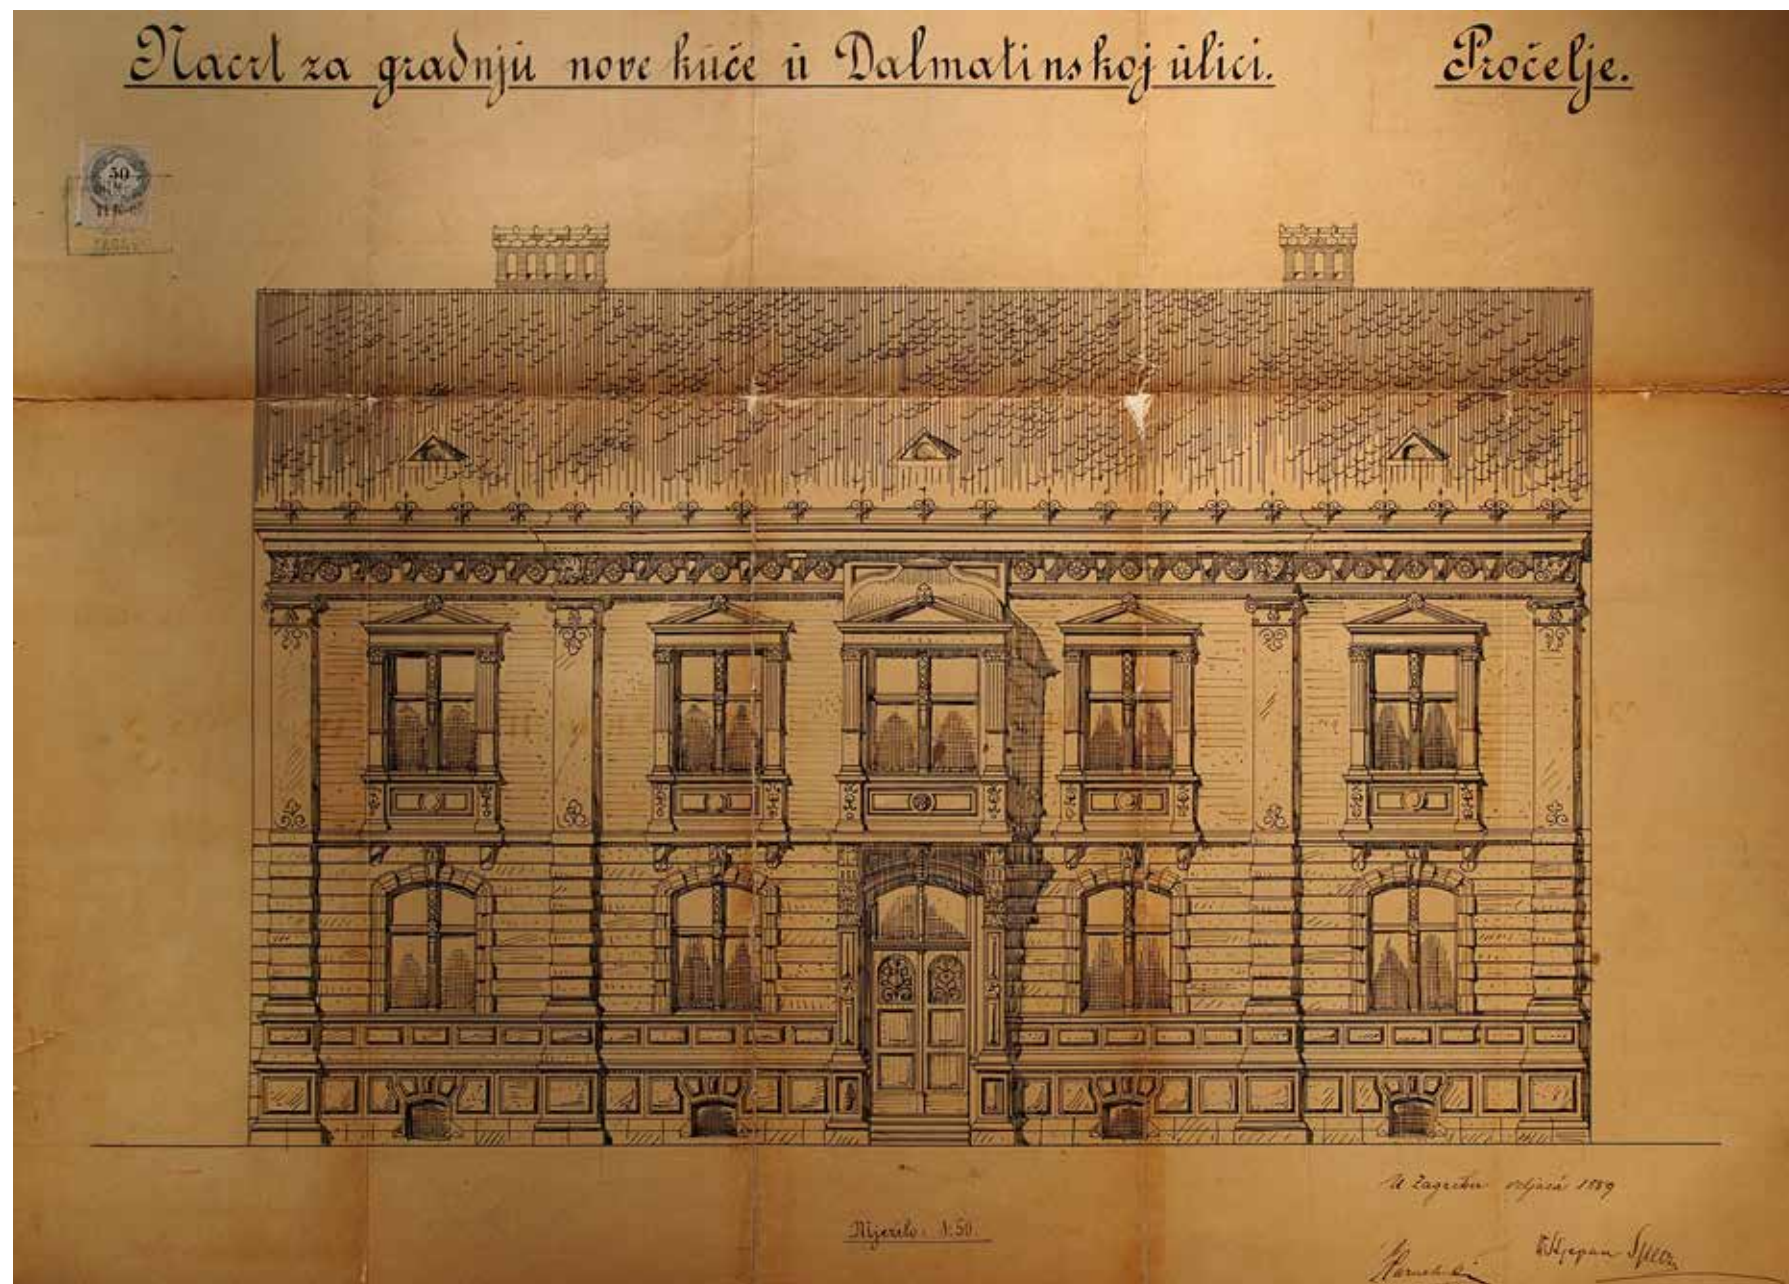 Nacrt za gradnju nove kuće u Dalmatinskoj ulici.
Pročelje.
50
Mjerilo: 1:50.
U Zagrebu veljača 1889
Stjepan